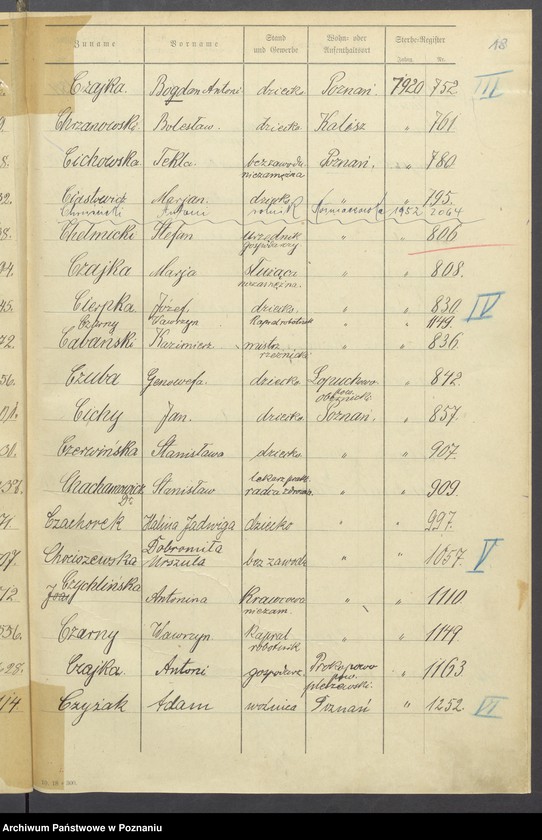 18
Zuname Vorname Stand und Gewerbe Wohn- oder Aufenthaltsort Sterbe-Register
Jahrg. Nr.
Czajka. Bogdan Antoni dziecko Poznań 1920 752 III
Chrzanowski Bolesław. dziecko. Kalisz " 761
Cichowska. Tekla. bez zawodu niezamężna Poznań. " 780
Ciastowicz Marjan. dziecko " " 795.
Antoni rolnik 1952 2064
Chełmicki Stefan urzędnik gospodarczy " " 806
Czajka Marja służąca niezamężna. " " 808.
Cierpka. Józef. dziecko. " " 830 IV
Czarny Wawrzyn Kapral robotnik " " 1149.
Cabański Kazimierz mistrz rzeźnicki " " 836.
Czuba Genowefa. dziecko Łopuchowo pow. obornicki " 842
Cichy Jan. dziecko Poznań. " 857.
Czerwińska Stanisława dziecko " " 907.
Chachamowicz Dr. Stanisław lekarz prakt. radca zdrowia " " 909.
Czachorek Halina Jadwiga dziecko " " 997.
Chociszewska Dobromiła Urszula bez zawodu " " 1057. V
Czychlińska Antonina Krawcowa niezam. " " 1110.
Czarny Wawrzyn Kapral robotnik " " 1149
Czajka. Antoni gospodarz. Prokopowo pow. pleszewski. " 1163
Czyżak Adam woźnica Poznań " 1252. VI
Archiwum Państwowe w Poznaniu